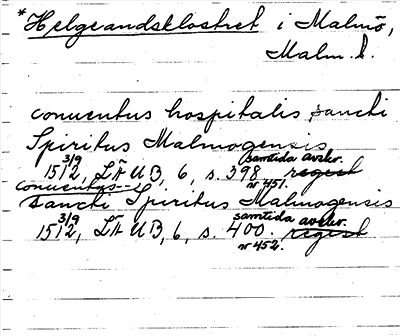 *Helgeandsklostret i Malmö,
Malm. l.
conuentus hospitalis sancti
Spiritus Malmogensis
3/9 samtida avskr.
1512, LÄUB, 6, s. 398 regest
nr 451.
conuentus
sancti Spiritus Malmogensis
3/9 samtida avskr.
1512, LÄUB, 6, s. 400. regest
nr 452.